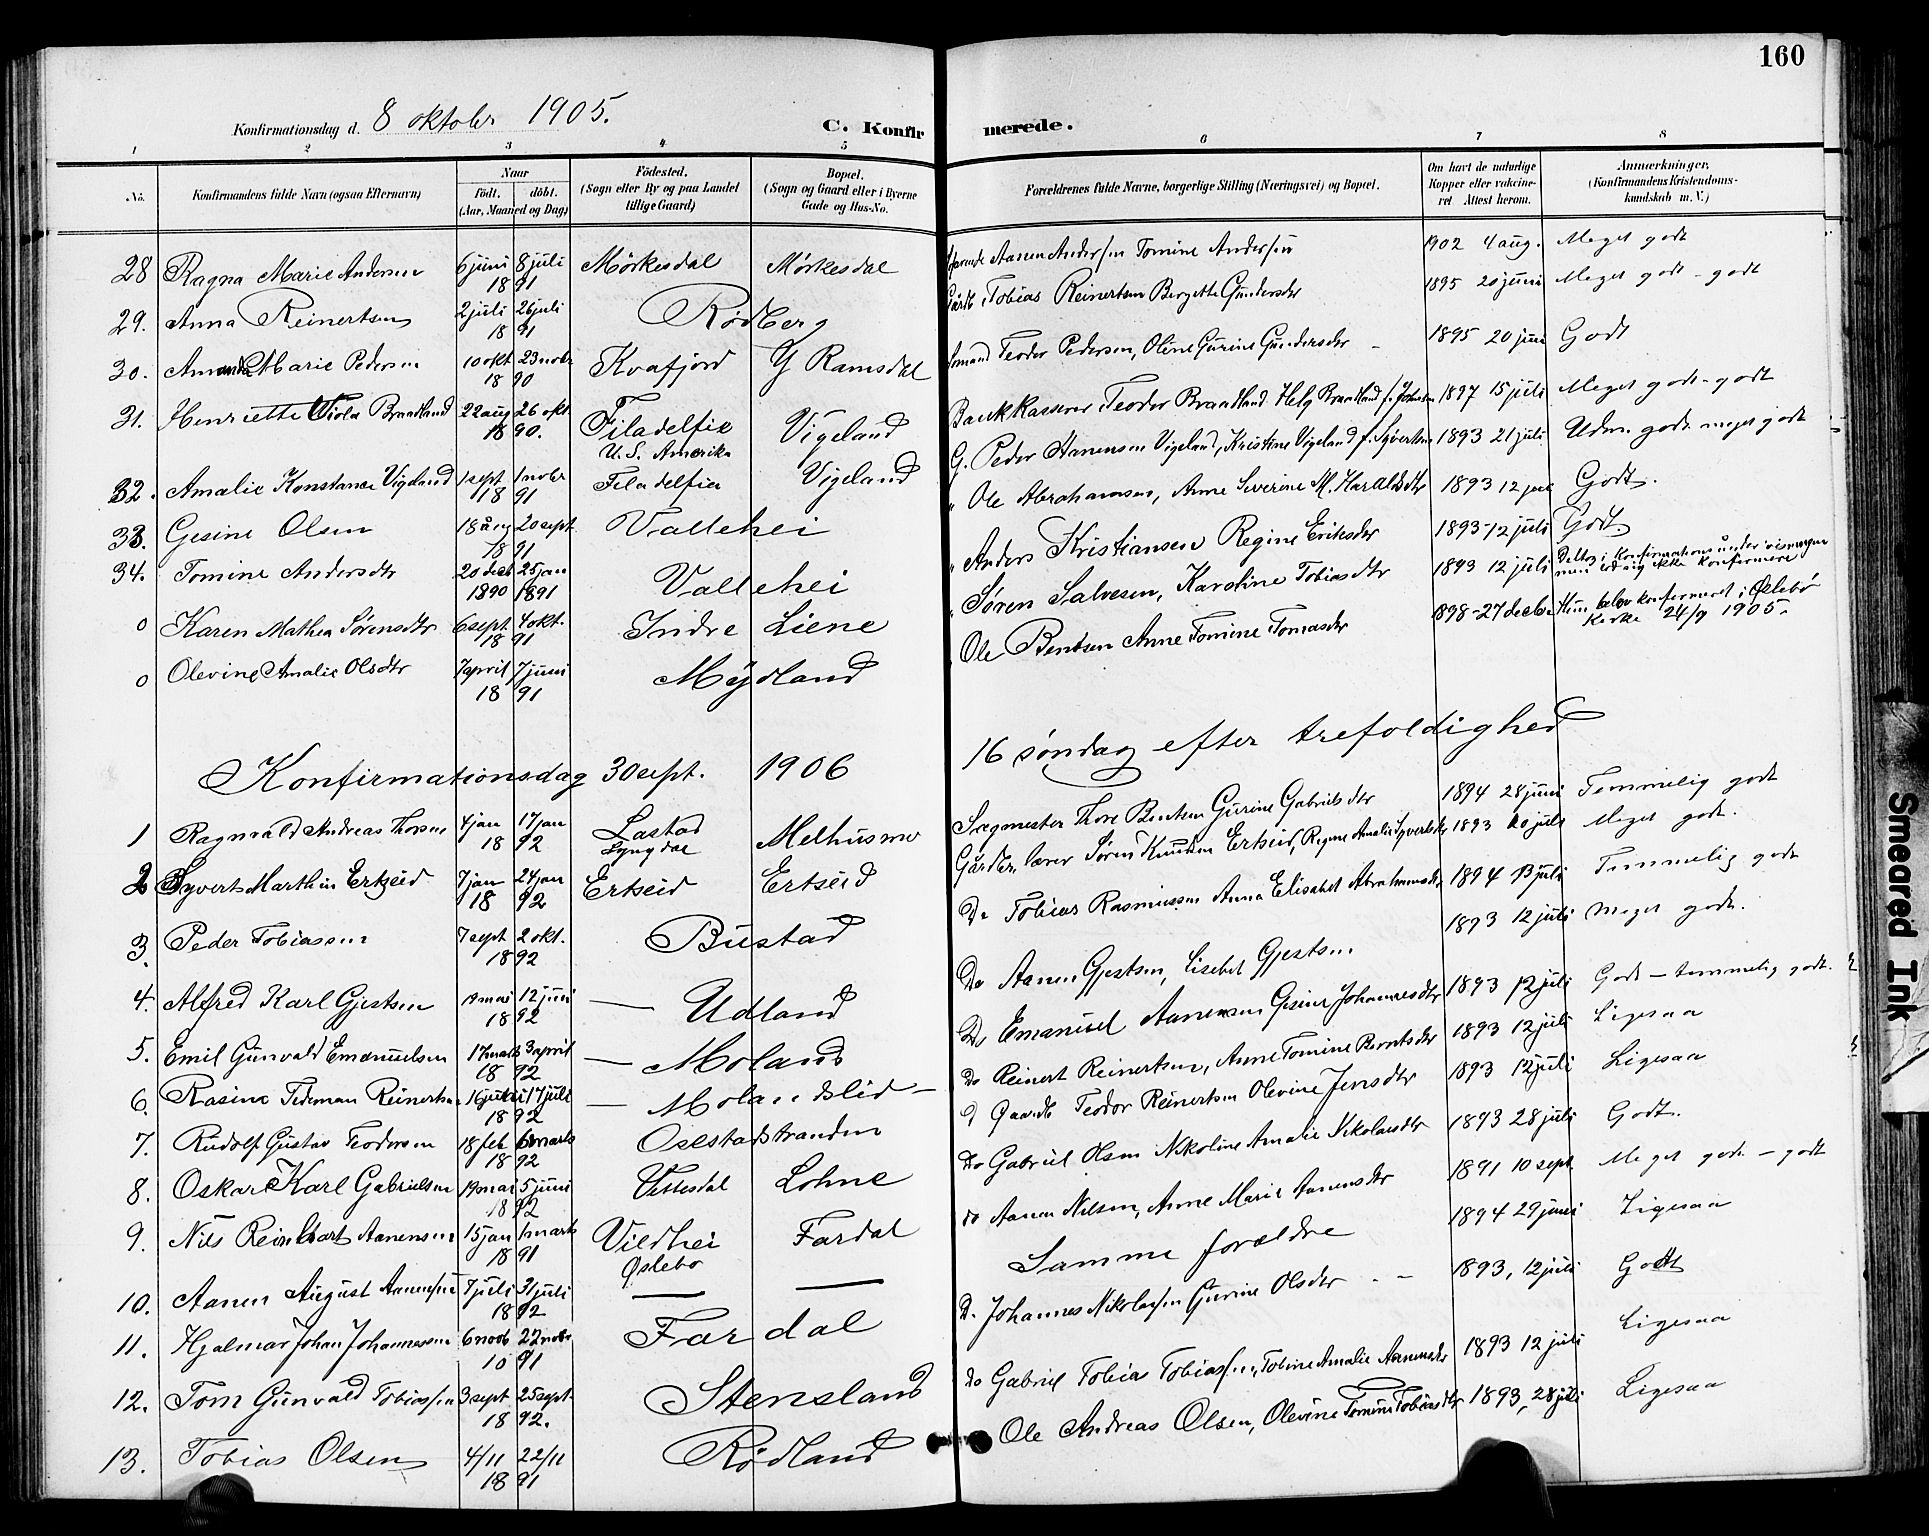 160
Konfirmationsdag d. 8 oktober 1905.
C. Konfirmerede.
1 2 3 4 5 6 7 8
No. Konfirmandens fulde Navn (ogsaa Efternavn) Naar født, døbt. (Aar, Maaned og Dag) Fødested. (Sogn eller By og paa Landet tillige Gaard) Bopæl. (Sogn og Gaard eller i Byerne Gade og Hus-No. Forældrenes fulde Navne, borgerlige Stilling (Næringsvei) og Bopæl. Om havt de naturlige Kopper eller vaccineret Attest herom. Anmærkninger. (Konfirmandens Kristendomskundskab m. V.)
28 Ragna Marie Andersen 6 juni 8 juli 1891 Mørkesdal Mørkesdal Aanen Andersen Tomine Andersen 1902 4 aug. Meget godt
29. Anna Reinertsen 2 juli 26 juli 1891 Rødberg Tobias Reinertsen Bergitte Gundersdtr 1895 20 juni Meget godt - godt
30. Amanda Marie Pedersen 10 okt 23 nobr 1890 Kvafjord Y Ramsdal Teodor Pedersen, Oline Gurine Gundersdtr 1895 20 juni Godt
31. Henriette Viola Brandland 22 aug 26 okt. 1890. Filadelfie U.S. Amerika Vigeland Bankkasserer Teodor Brandland Helg Brandland f. Johnsen 1897 15 juli Meget godt - godt
32. Amalie Konstance Vigeland 1 sept 1 nobr 1891 Filadelfia Vigeland G. Peder Aanensen Vigeland, Kristine Vigeland f. Syvertsen 1893 21 juli Udm. godt meget godt
33. Gesine Olsen 18 aug 20 sept 1891 Vallehei " Ole Abrahamsen, Anne Severine M. Haraldsdtr 1893 12 juli Godt.
34. Tomine Andersdtr 20 decb 25 jan 1890 1891 Vallehei " Anders Kristiansen Regine Eriksdtr 1893 - 12 juli Godt.
0 Karen Mathea Sørensdtr 6 sept 4 okt. 1891 Indre Liene " Søren Salvesen, Karoline Tobiasdtr 1893 12 juli Deltog i konfirmationsundervisningen men lod sig ikke konfirmere
0 Olevine Amalie Olsdtr 7 april 7 juni 1891 Mydland Ole Bentsen Anne Tomine Tomasdtr 1898 - 27 decbr Hun blev konfirmeret i Øslebø Kirke 24/9 1905.
Konfirmationsdag 30 sept. 1906 16 søndag efter trefoldighed
1 Ragnvald Andreas Thorsen 4 jan 17 jan 1892 Lastad Lyngdal Melhusmo Sagmester Thore Bentsen Gurine Gabrielsdtr 1894 28 juni Temmelig godt
2 Syvert Martin Ertzeid 7 jan 24 jan 1892 Ertseid Ertseid Gårdbr. lærer Søren Knudsen Ertseid, Regine Amalie Syvertsdtr 1893 20 juli Meget godt.
3. Peder Tobiassen 7 sept 2 okt. 1892 Bustad Do Tobias Rasmussen Anna Elisabet Abrahamsdtr 1894 13 juli Temmelig godt
4. Alfred Karl Gjestsen 19 mai 12 juni 1892 — Udland Do Aanen Gjestsen, Lisebet Gjestsen 1893 12 juli Meget godt.
5. Emil Gunvald Emanuelsen 17 marts 3 april 1892 — Moland Do Emanuel Aanensen Gesine Johannesdtr 1893 12 juli Godt - temmelig godt.
6. Rasine Tideman Reinertsen 16 juli 17 juli 1892 — Molandslid — Do Reinert Reinertsen, Anne Tomine Berntsdtr 1893 12 juli Ligesaa
7. Rudolf Gustav Teodorsen 18 feb 6 marts 1892 Osestadstranden Gaardb Teodor Reinertsen Olevine Jensdtr 1893 12 juli Ligesaa
8. Oskar Karl Gabrielsen 19 mai 5 juni 1892 Vettesdal Lohne Do Gabriel Olsen Nikoline Amalie Nikolaisdtr 1893 28 juli Godt.
9. Nils Reinhart Aanensen 15 jan 1 marts 1891 Viedhei Øslebø Fardal do Aanen Nilsen, Anne Marie Aanensdtr 1891 10 sept. Meget godt - godt
10. Aanen August Aanensen 7 juli 31 juli 1892 — — Samme forældre 1894 29 juni Ligesaa
11. Hjalmar Johan Johannessen 6 novb 22 nobr 1891 Fardal D. Johannes Nikolaisen Gurine Olsdtr - - 1893, 12 juli Godt
12. Tom Gunvald Tobiassen 3 sept 25 sept. 1892. Stensland do Gabriel Tobias Tobiassen, Tobine Amalie Aanensdtr 1893 12 juli Ligesaa
13. Tobias Olsen 4/11 22/11 1891 Rødland Ole Andreas Olsen, Olevine Tomine Tobiasdtr 1893, 28 juli Ligesaa
Smeared Ink